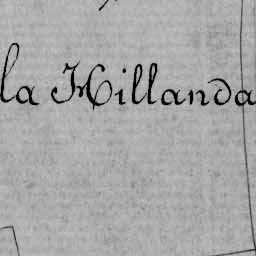 la Hillanda